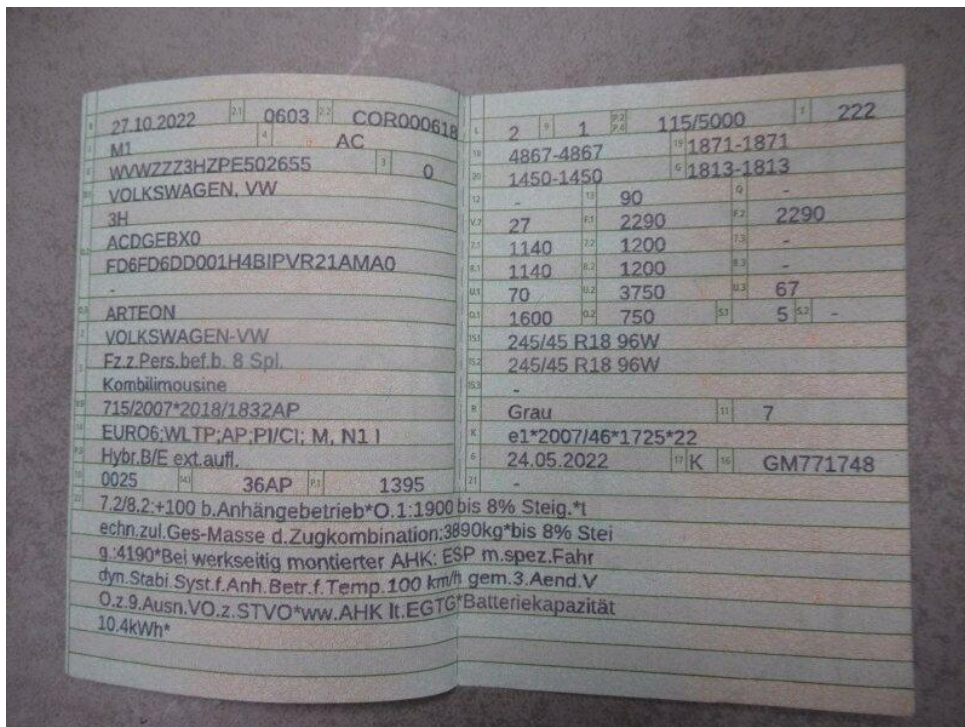 27.10.2022 2.1 0603 2.2 COR000618
M1 4 AC
WVWZZZ3HZPE502655 3 0
VOLKSWAGEN, VW
3H
ACDGEBX0
FD6FD6DD001H4BIPVR21AMA0
-
ARTEON
VOLKSWAGEN-VW
Fz.z.Pers.bef.b. 8 Spl.
Kombilimousine
715/2007*2018/1832AP
EURO6;WLTP;AP;PI/CI; M, N1 I
Hybr.B/E ext.aufl.
0025 36AP P.1 1395
L 2 9 1 P.2 P.4 115/5000 T 222
18 4867-4867 19 1871-1871
20 1450-1450 G 1813-1813
12 - 13 90 Q -
V.7 27 F.1 2290 F.2 2290
7.1 1140 7.2 1200 7.3 -
8.1 1140 8.2 1200 8.3 -
U.1 70 U.2 3750 U.3 67
O.1 1600 O.2 750 S.1 5 S.2 -
15.1 245/45 R18 96W
15.2 245/45 R18 96W
15.3 -
R Grau 11 7
K e1*2007/46*1725*22
6 24.05.2022 17 K 16 GM771748
21 -
22 7.2/8.2:+100 b.Anhängebetrieb*O.1:1900 bis 8% Steig.*t
echn.zul.Ges-Masse d.Zugkombination:3890kg*bis 8% Stei
g.:4190*Bei werkseitig montierter AHK: ESP m.spez.Fahr
dyn.Stabi.Syst.f.Anh.Betr.f.Temp.100 km/h gem.3.Aend.V
O.z.9.Ausn.VO.z.STVO*ww.AHK lt.EGTG*Batteriekapazität
10.4kWh*